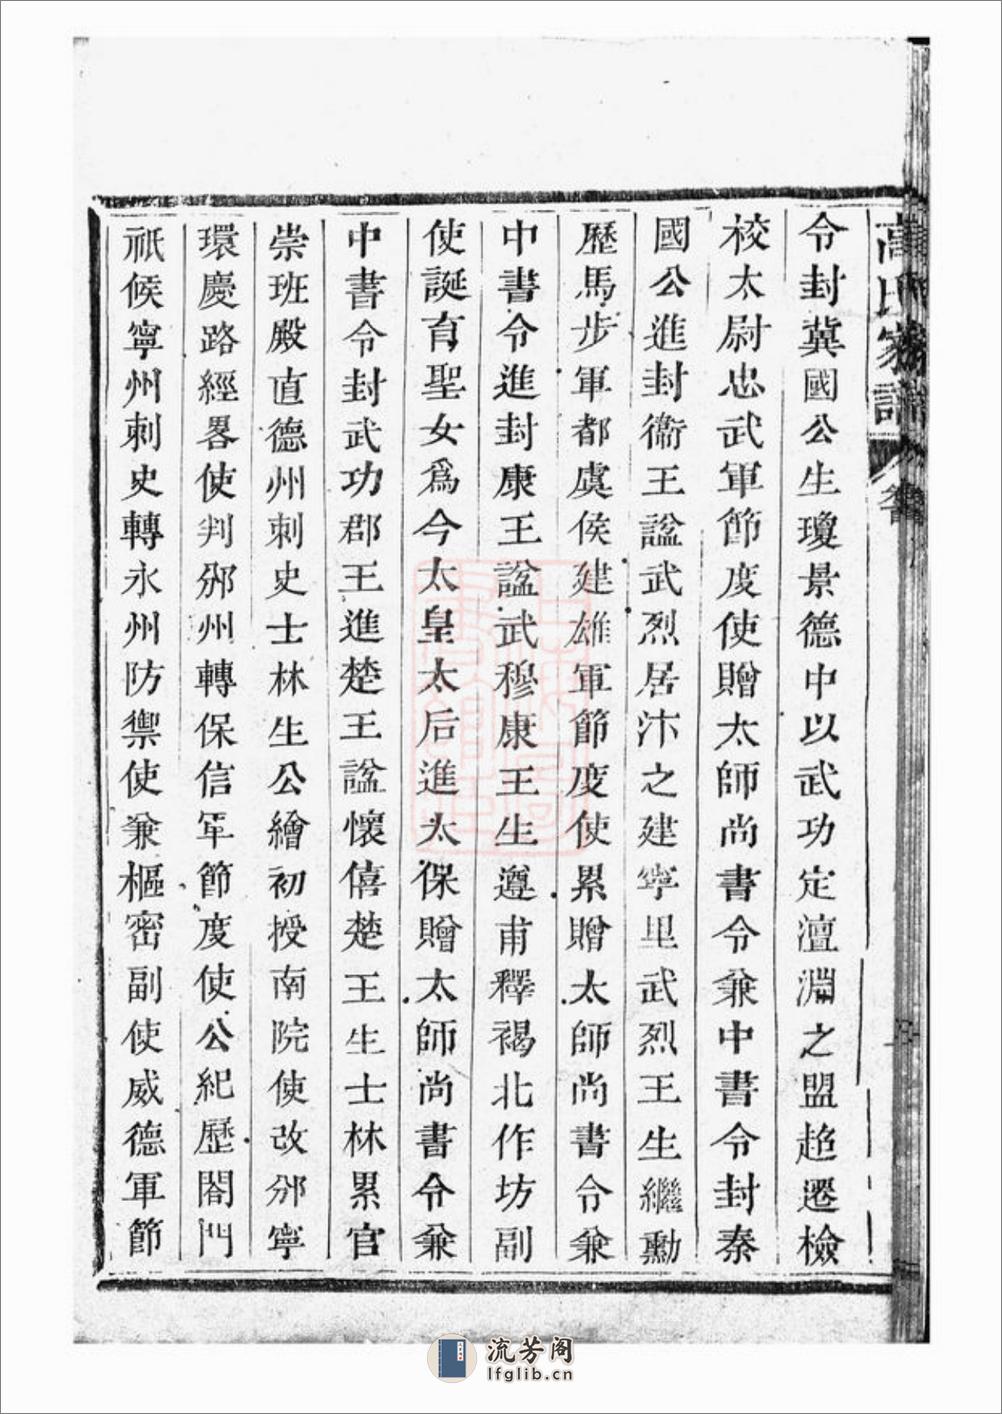 高氏家譜
令封冀國公生瓊景德中以武功定澶淵之盟超遷檢
校太尉忠武軍節度使贈太師尚書令兼中書令封秦
國公進封衞王諡武烈居汴之建寧里武烈王生繼勳
歷馬步軍都虞侯建雄軍節度使累贈太師尚書令兼
中書令進封康王諡武穆康王生遵甫釋褐北作坊副
使誕育聖女爲今太皇太后進太保贈太師尚書令兼
中書令封武功郡王進楚王諡懷僖楚王生士林累官
崇班殿直德州刺史士林生公繪初授南院使改邠寧
環慶路經畧使判邠州轉保信軍節度使公紀歷閤門
祇候寧州刺史轉永州防禦使兼樞密副使威德軍節
流芳阁
lfglib.cn